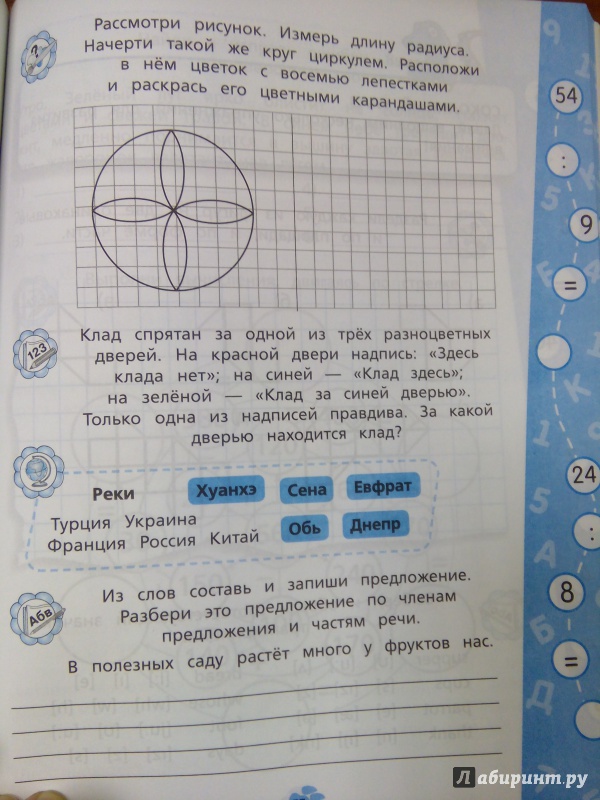 Рассмотри рисунок. Измерь длину радиуса.
Начерти такой же круг циркулем. Расположи
в нём цветок с восемью лепестками
и раскрась его цветными карандашами.
54
:
9
=
123
Клад спрятан за одной из трёх разноцветных
дверей. На красной двери надпись: «Здесь
клада нет»; на синей — «Клад здесь»;
на зелёной — «Клад за синей дверью».
Только одна из надписей правдива. За какой
дверью находится клад?
Реки
Хуанхэ Сена Евфрат
Турция Украина
Обь Днепр
Франция Россия Китай
24
:
8
=
Абв
Из слов составь и запиши предложение.
Разбери это предложение по членам
предложения и частям речи.
В полезных саду растёт много у фруктов нас.
Лабиринт.ру